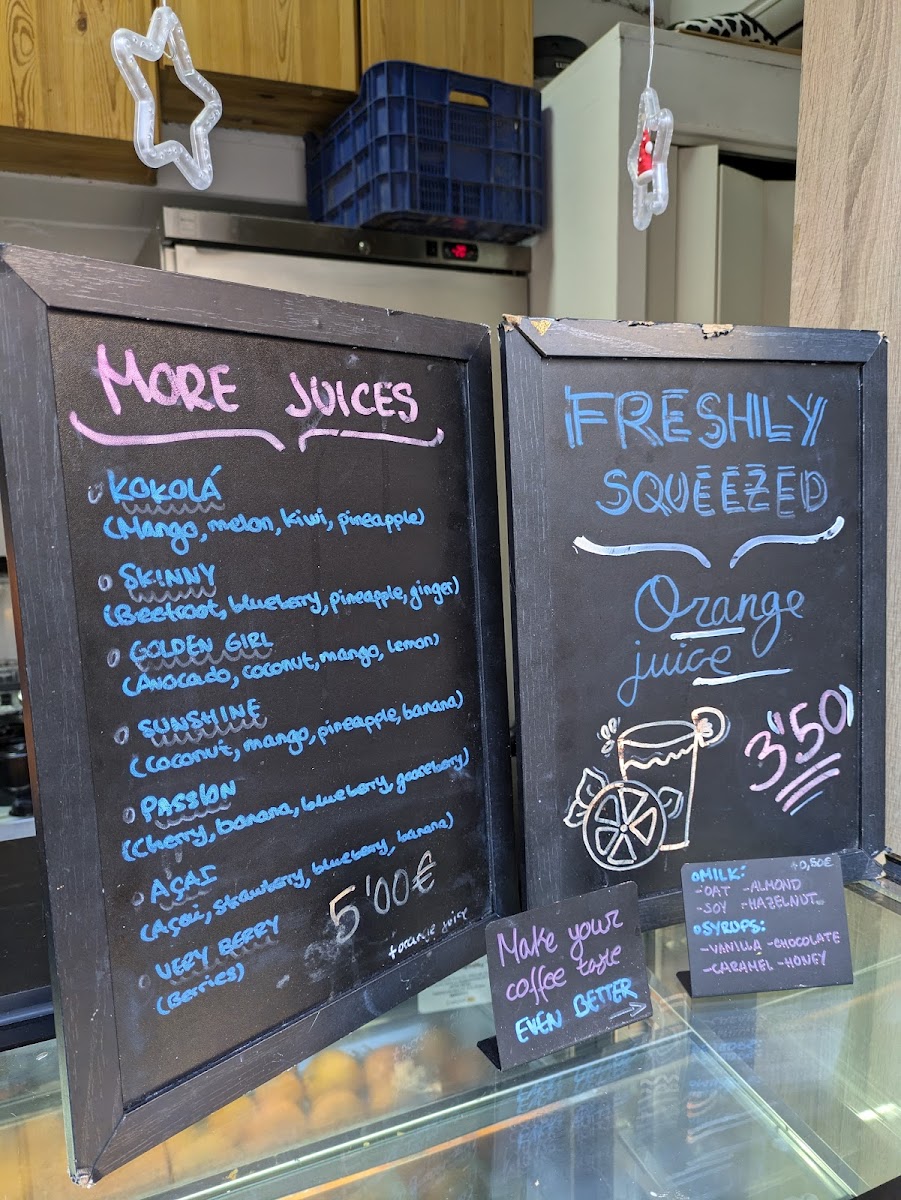 MORE JUICES
KOKOLÁ
(Mango, melon, kiwi, pineapple)
SKINNY
(Beetroot, blueberry, pineapple, ginger)
GOLDEN GIRL
(Avocado, coconut, mango, lemon)
SUNSHINE
(Coconut, mango, pineapple, banana)
PASSION
(Cherry, banana, blueberry, gooseberry)
AÇAI
(Açai, strawberry, blueberry, banana)
VERY BERRY
(Berries)
5'00€
+ orange juice
FRESHLY
SQUEEZED
Orange
juice
3'50
Make your
coffee taste
EVEN BETTER
+0,50€
MILK:
-OAT -ALMOND
-SOY -HAZELNUT
SYRUPS:
-VANILLA -CHOCOLATE
-CARAMEL -HONEY